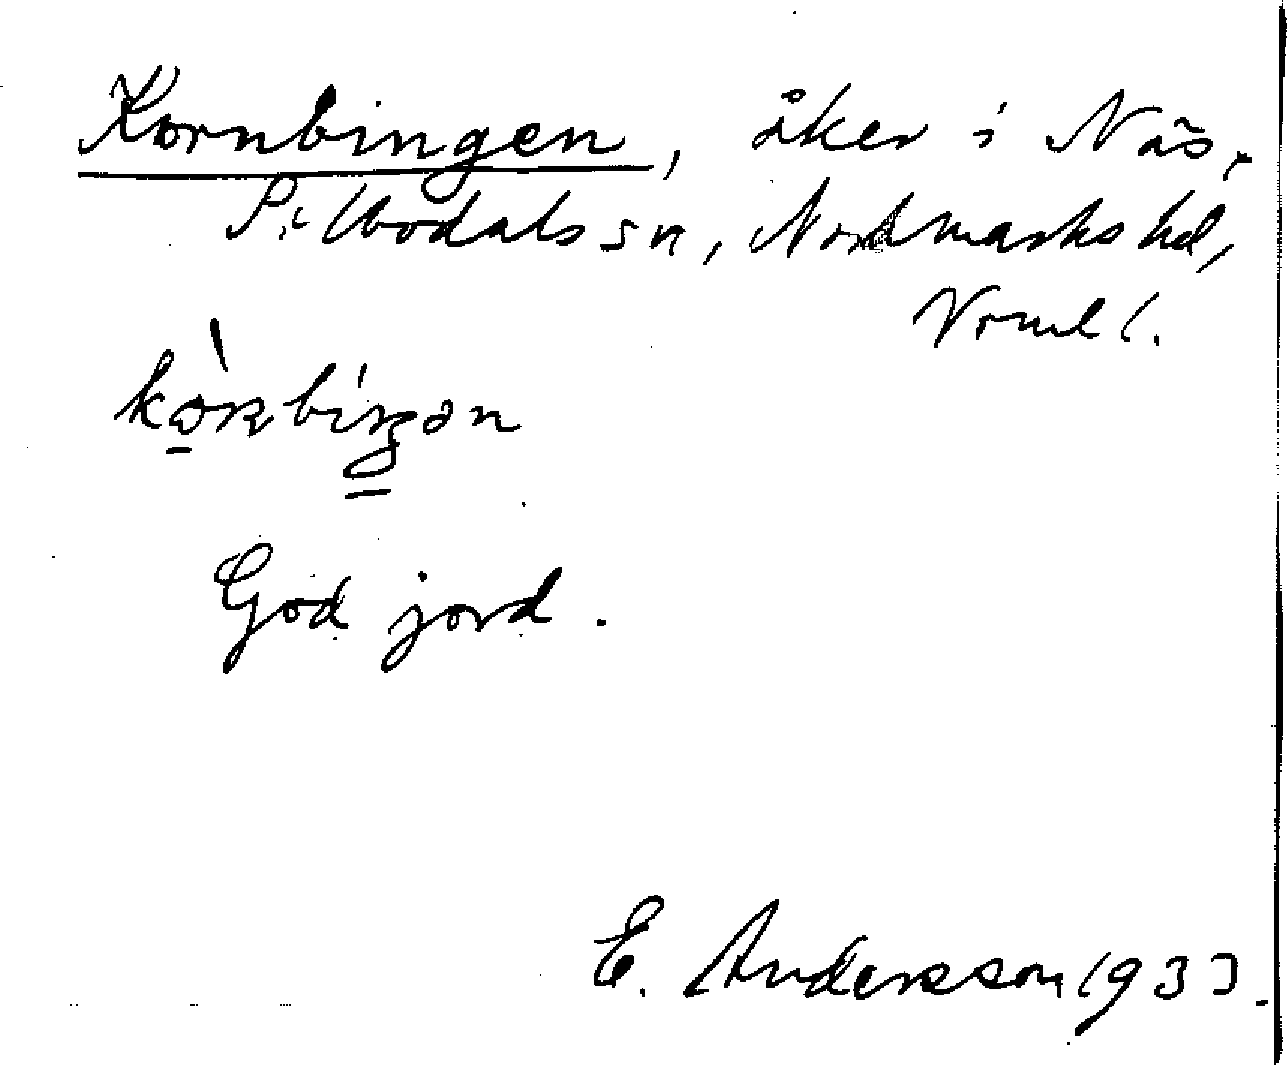 Kornbingen, åker i Näs,
Silbodals sn, Nordmarks hd,
Vrml.
God jord.
E. Andersson 1933.